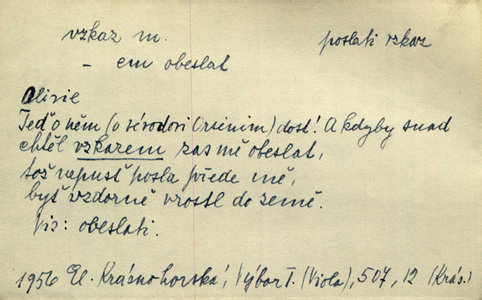 vzkaz m. poslati vzkaz
- em obeslat
Olivie
Teď o něm (o vévodovi Orsinim) dost! A kdyby snad
chtěl vzkazem zas mě obeslat,
tož nepusť posla přede mě,
byť vzdorně vrostl do země.
Viz: obeslati.
1956 El. Krásnohorská, Výbor I. (Viola), 507, 12 (Krás.)